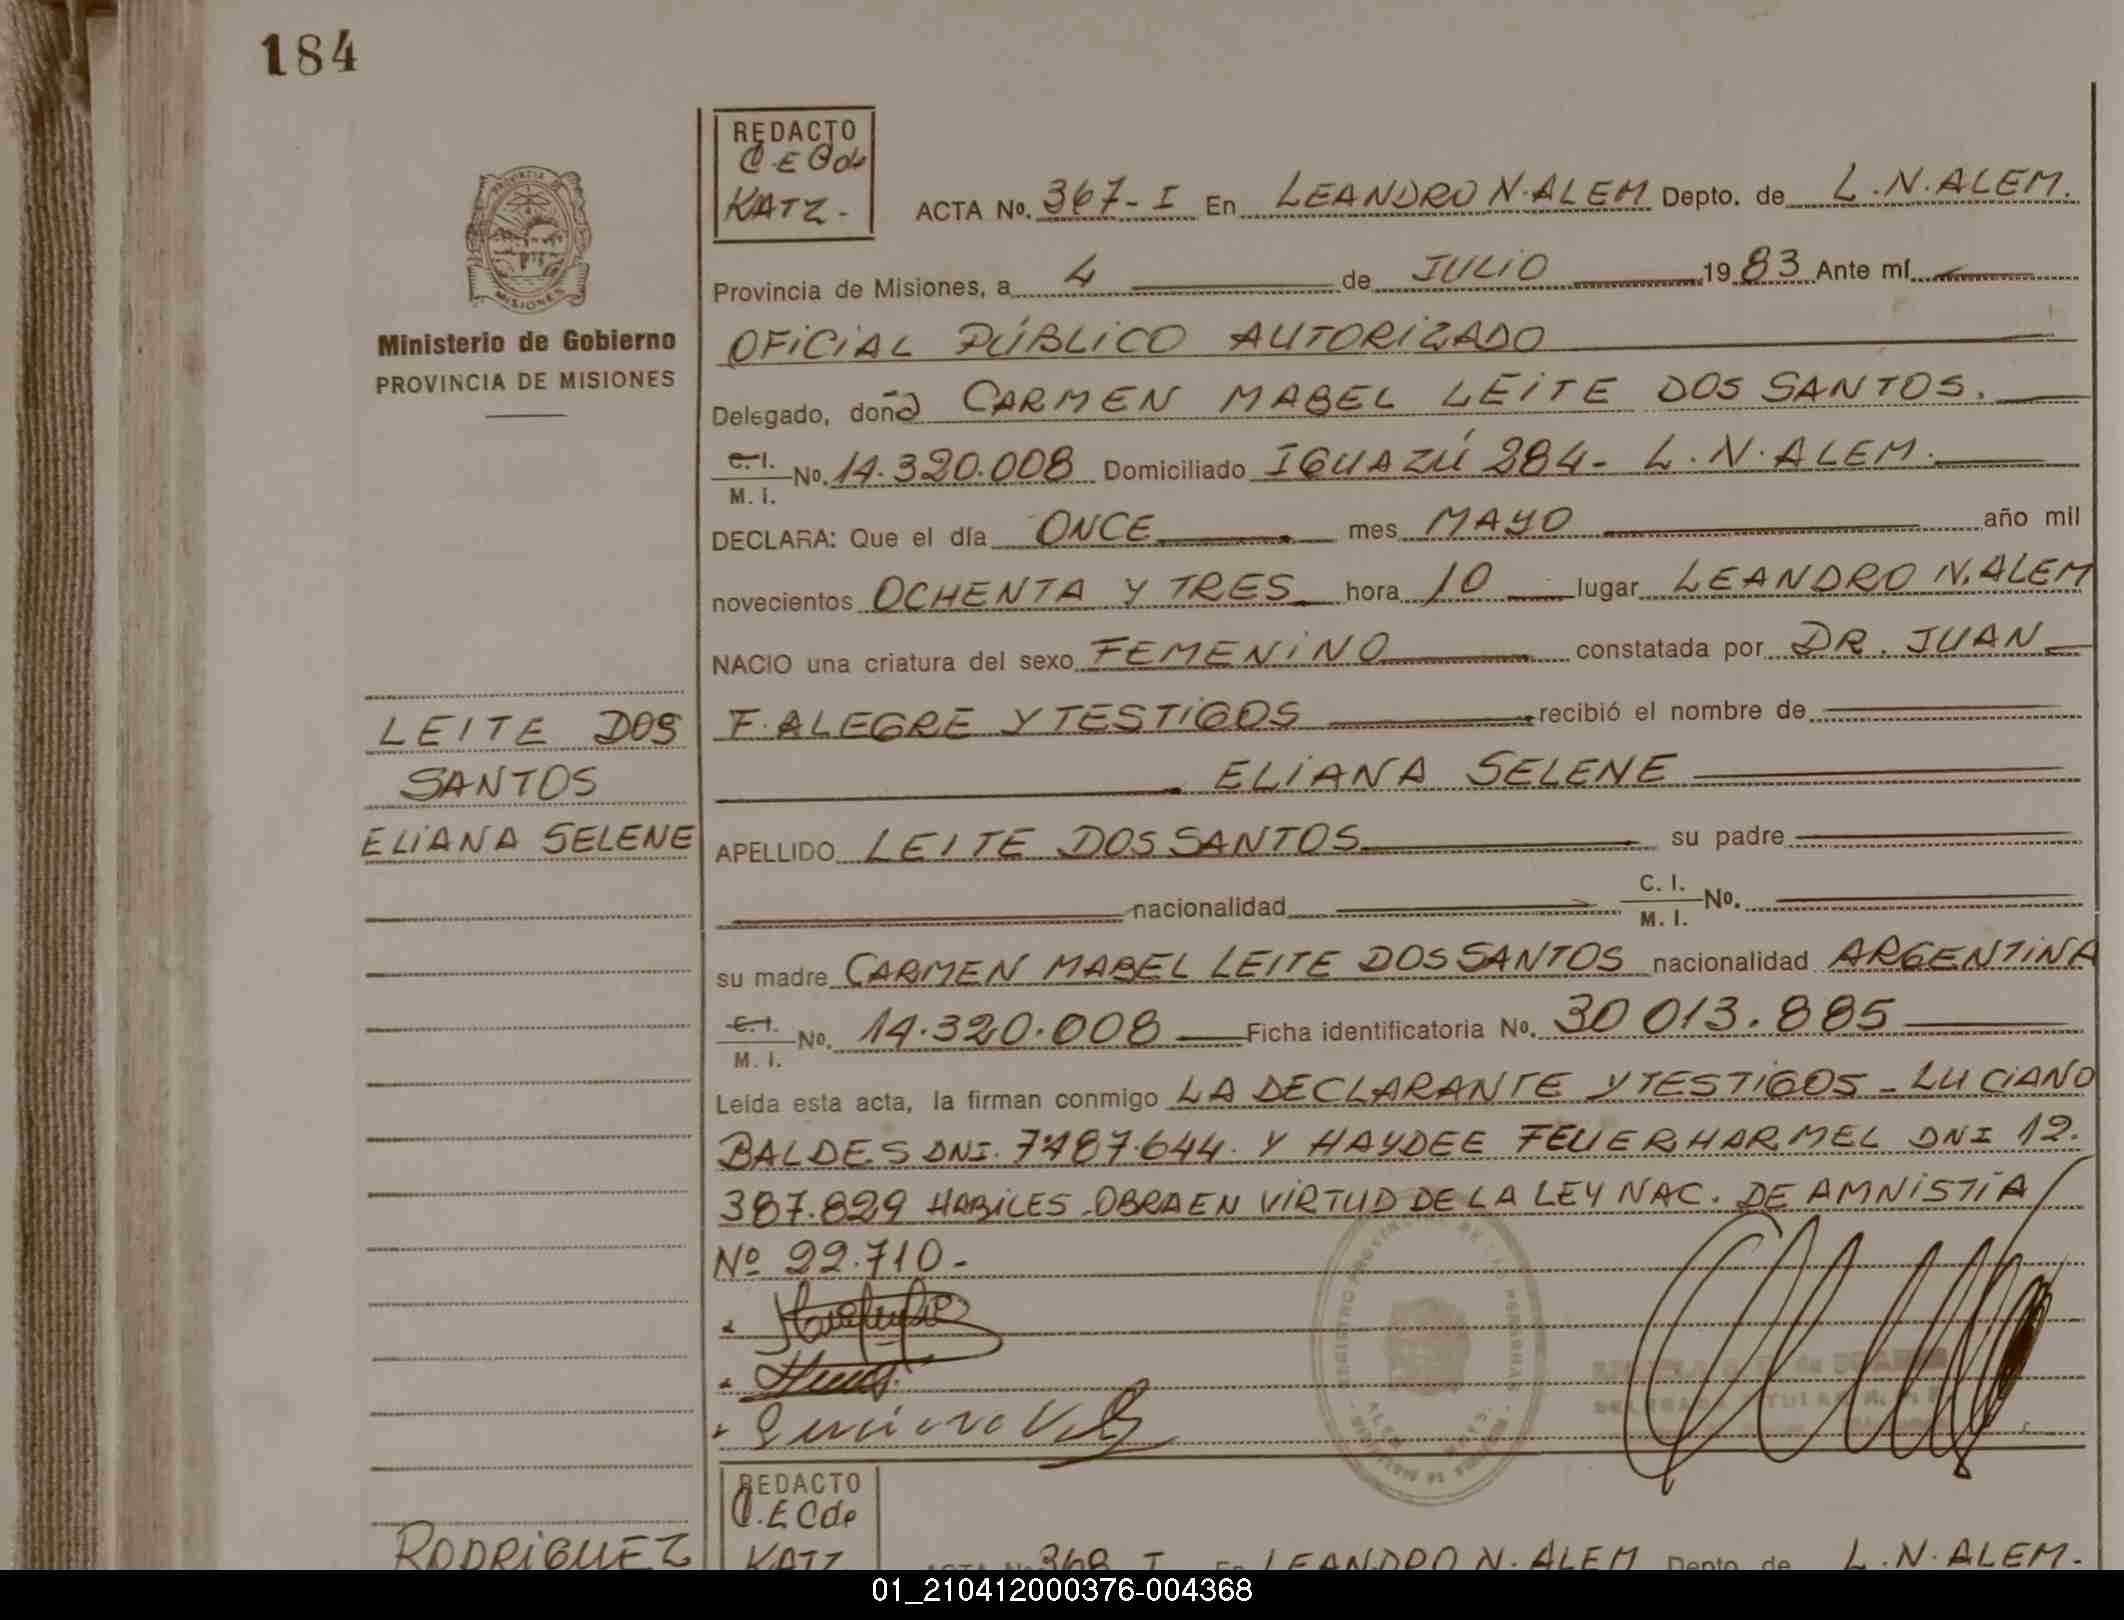 184
REDACTO
C.E.C de
KATZ.-
ACTA No. 367-I En LEANDRO N. ALEM Depto. de L.N. ALEM.
Provincia de Misiones, a 4 de JULIO 1983 Ante mí
OFICIAL PÚBLICO AUTORIZADO
Delegado, doña CARMEN MABEL LEITE DOS SANTOS.
C.I. / M.I. No. 14.320.008 Domiciliado IGUAZÚ 284- L.N. ALEM.
DECLARA: Que el día ONCE mes MAYO año mil
novecientos OCHENTA Y TRES hora 10 lugar LEANDRO N. ALEM
NACIO una criatura del sexo FEMENINO constatada por DR. JUAN
F. ALEGRE Y TESTIGOS recibió el nombre de
ELIANA SELENE
APELLIDO LEITE DOS SANTOS su padre
nacionalidad C.I. / M.I. No.
su madre CARMEN MABEL LEITE DOS SANTOS nacionalidad ARGENTINA
C.I. / M.I. No. 14.320.008 Ficha identificatoria No. 30 013.885
Leída esta acta, la firman conmigo LA DECLARANTE Y TESTIGOS - LUCIANO
BALDES DNI. 7.487.644. Y HAYDEE FEUERHARMEL DNI 12.
387.829 HABILES. OBRA EN VIRTUD DE LA LEY NAC. DE AMNISTÍA
Nº 22.710-
PROVINCIA DE
MISIONES
Ministerio de Gobierno
PROVINCIA DE MISIONES
LEITE DOS
SANTOS
ELIANA SELENE
REDACTO
C.E C de
KATZ
ACTA No. 368 I En LEANDRO N. ALEM Depto. de L.N. ALEM.
RODRIGUEZ
01_210412000376-004368